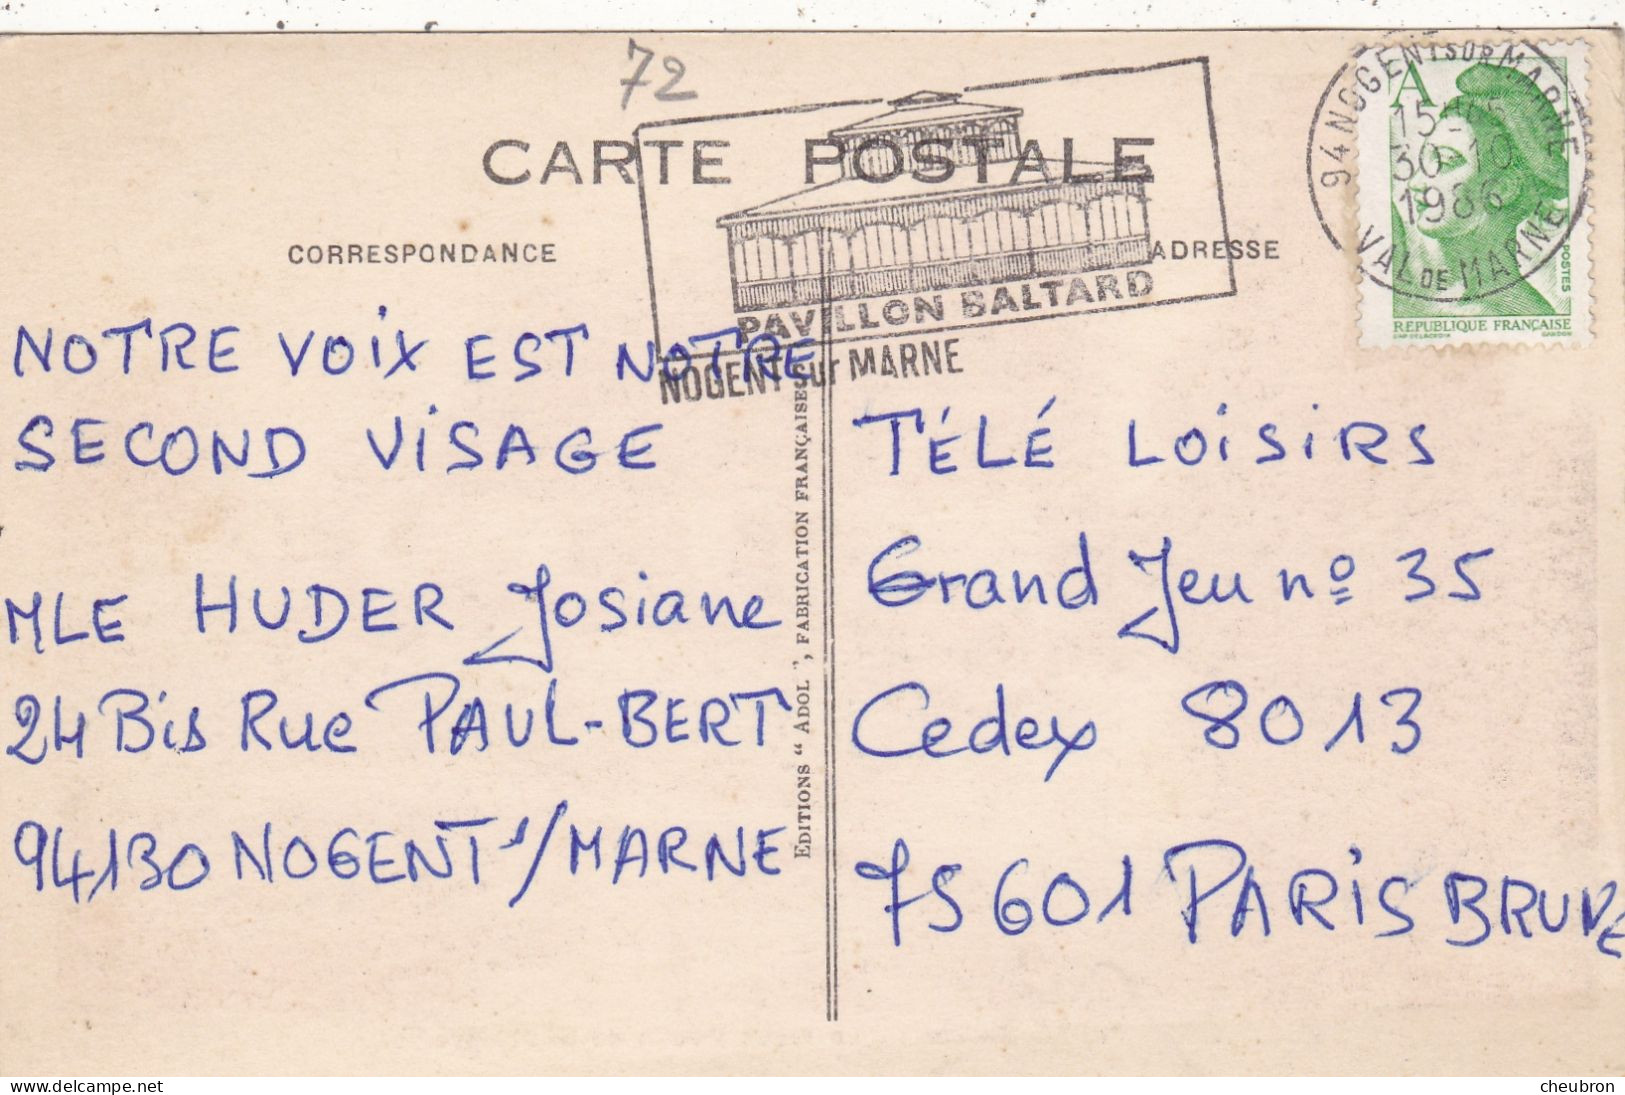 72
CARTE POSTALE
CORRESPONDANCE
ADRESSE
PAVILLON BALTARD
NOGENT sur MARNE
94 NOGENT SUR MARNE
15
30-10
1986
VAL DE MARNE
A
POSTES
REPUBLIQUE FRANÇAISE
GANDON
NOTRE VOIX EST NOTRE
SECOND VISAGE
MLE HUDER Josiane
24 Bis Rue PAUL-BERT
94130 NOGENT s/MARNE
EDITIONS "ADOL", FABRICATION FRANÇAISE
TÉLÉ LOISIRS
Grand Jeu nº 35
Cedex 8013
75601 PARIS BRUNE
cheubron